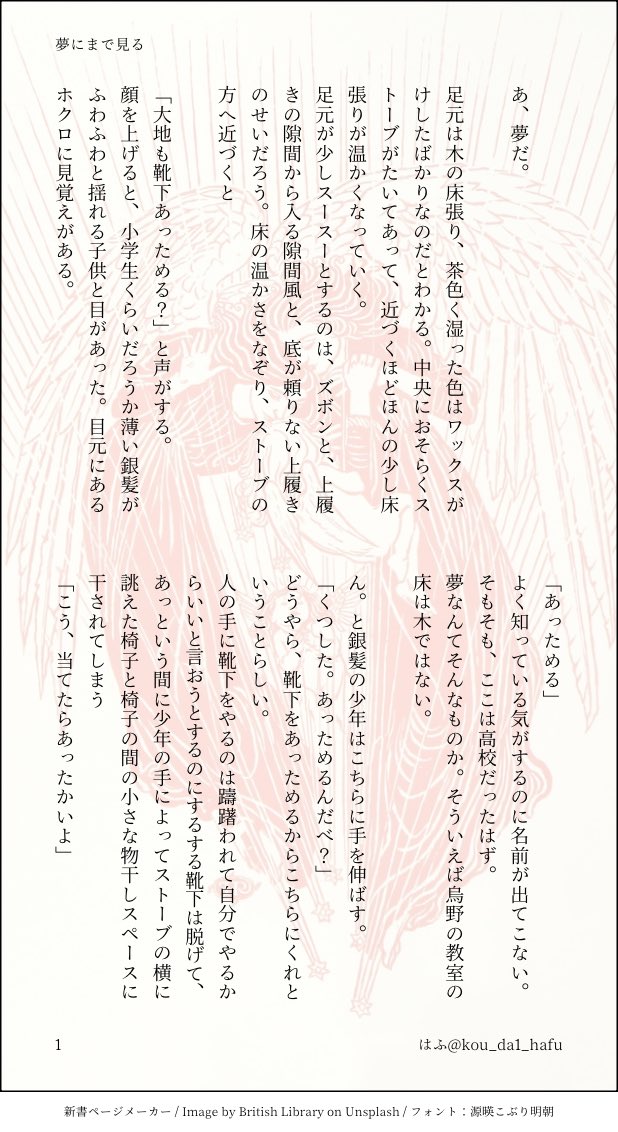 夢にまで見る
あ、夢だ。
足元は木の床張り、茶色く湿った色はワックスが
けしたばかりなのだとわかる。中央におそらくス
トーブがたいてあって、近づくほどほんの少し床
張りが温かくなっていく。
足元が少しスースーとするのは、ズボンと、上履
きの隙間から入る隙間風と、底が頼りない上履き
のせいだろう。床の温かさをなぞり、ストーブの
方へ近づくと
「大地も靴下あっためる?」と声がする。
顔を上げると、小学生くらいだろうか薄い銀髪が
ふわふわと揺れる子供と目があった。目元にある
ホクロに見覚えがある。
「あっためる」
よく知っている気がするのに名前が出てこない。
そもそも、ここは高校だったはず。
夢なんてそんなものか。そういえば烏野の教室の
床は木ではない。
ん。と銀髪の少年はこちらに手を伸ばす。
「くつした。あっためるんだべ?」
どうやら、靴下をあっためるからこちらにくれと
いうことらしい。
人の手に靴下をやるのは躊躇われて自分でやるか
らいいと言おうとするのにするする靴下は脱げて、
あっという間に少年の手によってストーブの横に
誂えた椅子と椅子の間の小さな物干しスペースに
干されてしまう
「こう、当てたらあったかいよ」
1
はふ@kou_da1_hafu
新書ページメーカー / Image by British Library on Unsplash / フォント:源暎こぶり明朝